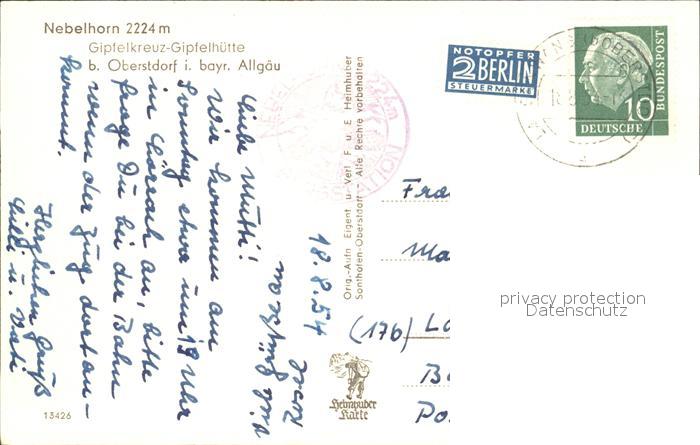 Nebelhorn 2224 m
Gipfelkreuz-Gipfelhütte
b. Oberstdorf i. bayr. Allgäu
NOTOPFER
2 BERLIN
STEUERMARKE
10
DEUTSCHE
BUNDESPOST
Liebe Mutti!
Wir kommen am
Sonntag etwa um 19 Uhr
in Lörrach an, bitte
frage Du bei der Bahn
wann der Zug dort an-
kommt.
Herzlichen Gruß
Willi u. Vati
18.8.54
Orig.-Aufn. Eigent. u. Verl. F. u. E. Heimhuber
Sonthofen-Oberstdorf - Alle Rechte vorbehalten
Fra
Ma
(17b) Lö
B
Po
Heimhuber
Karte
13426
privacy protection
Datenschutz